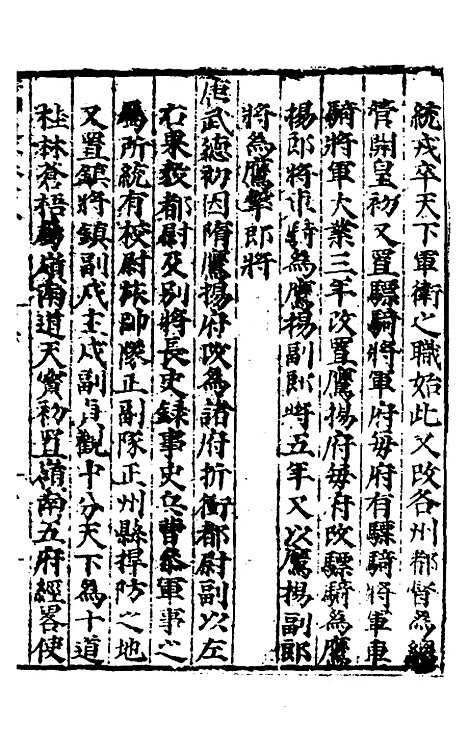 統戎卒天下軍衛之職始此又改各州都督為總
管開皇初又置驃騎將軍府每府有驃騎將軍車
騎將軍大業三年改置鷹揚府每府改驃騎為鷹
揚郎將車騎為鷹揚副郎將五年又以鷹揚副郎
將為鷹擊郎將
唐武德初因隋鷹揚府改為諸府折衝都尉副以左
右果毅都尉及別將長史録事史兵曹叅軍事之
為所統有校尉旅帥隊正副隊正州縣捍防之地
又置鎮將鎮副戍主戍副貞觀十分天下為十道
桂林蒼梧為嶺南道天寶初置嶺南五府經畧使